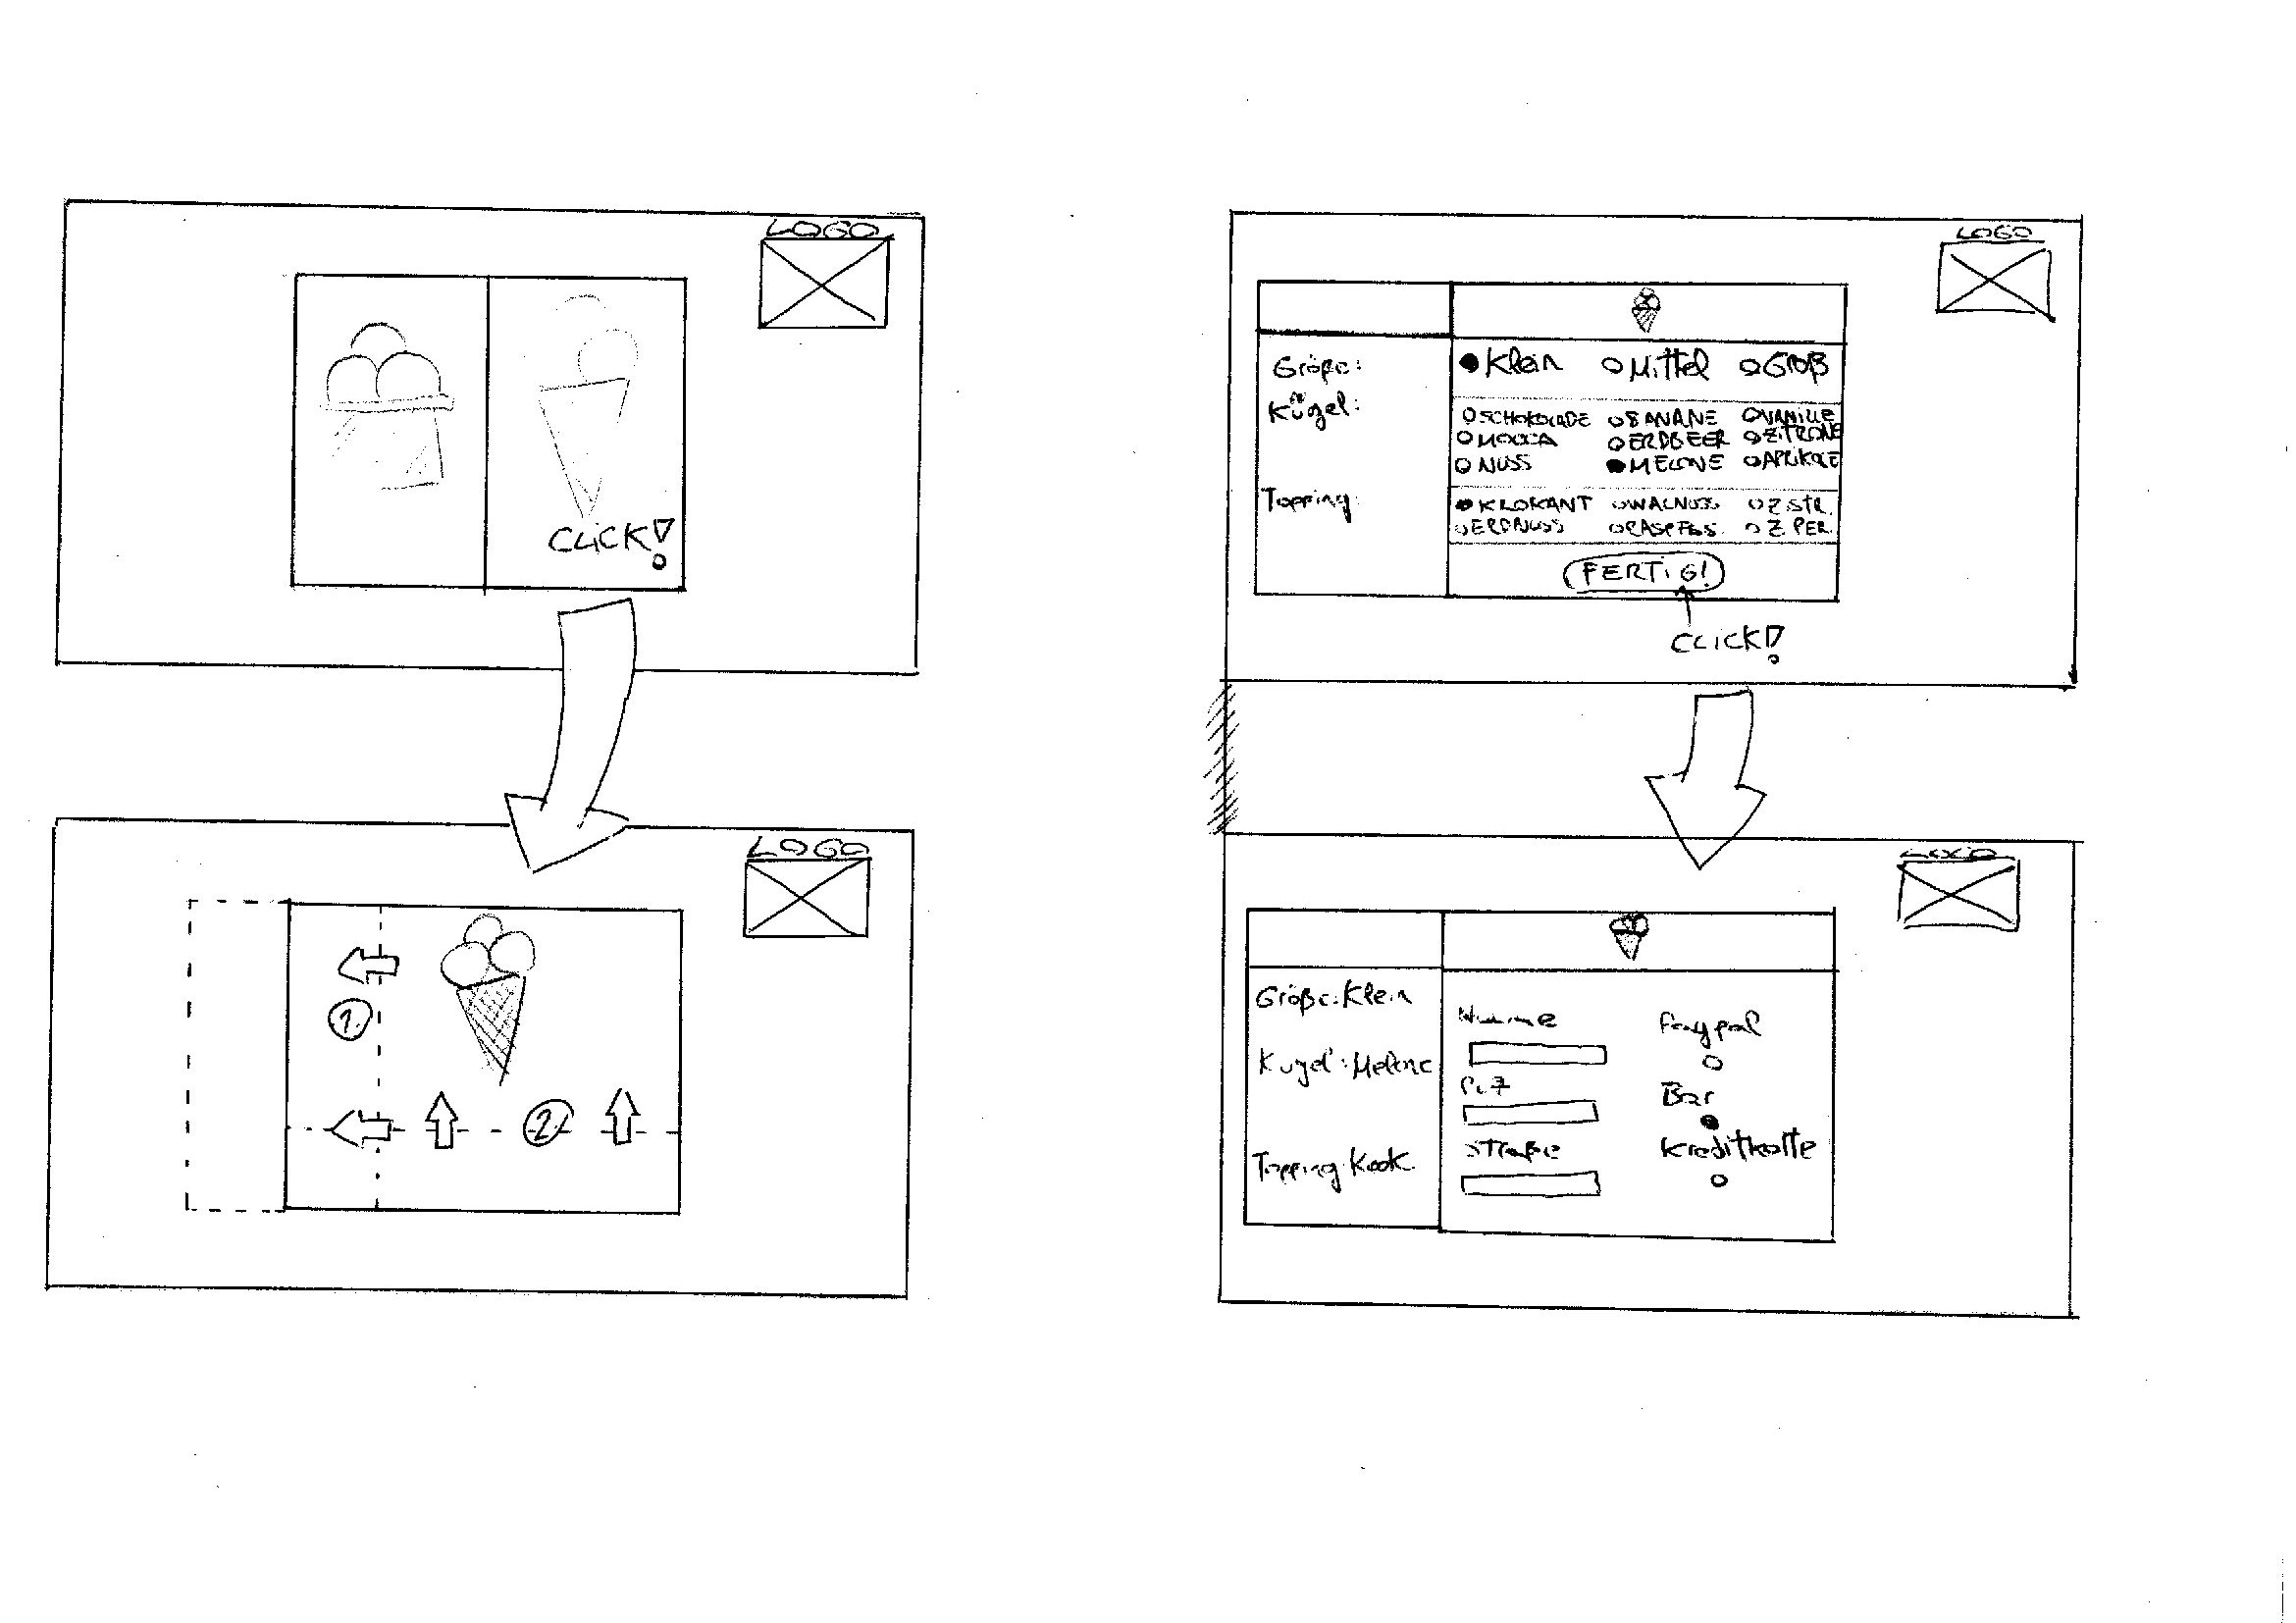 LOGO
CLICK!
LOGO
1.
2.
LOGO
Größe:
Klein Mittel Groß
Kügel:
SCHOKOLADE BANANE VANILLE
MOCCA ERDBEER ZITRONE
NUSS MELONE
Topping:
KLOKANT WALNUSS Z STR.
ERDNUSS Z PER.
FERTIG!
CLICK!
LOGO
Größe: Klein
Kugel: Melone
Topping: Krok.
PLZ
Straße
Paypal
Bar
Kreditkarte